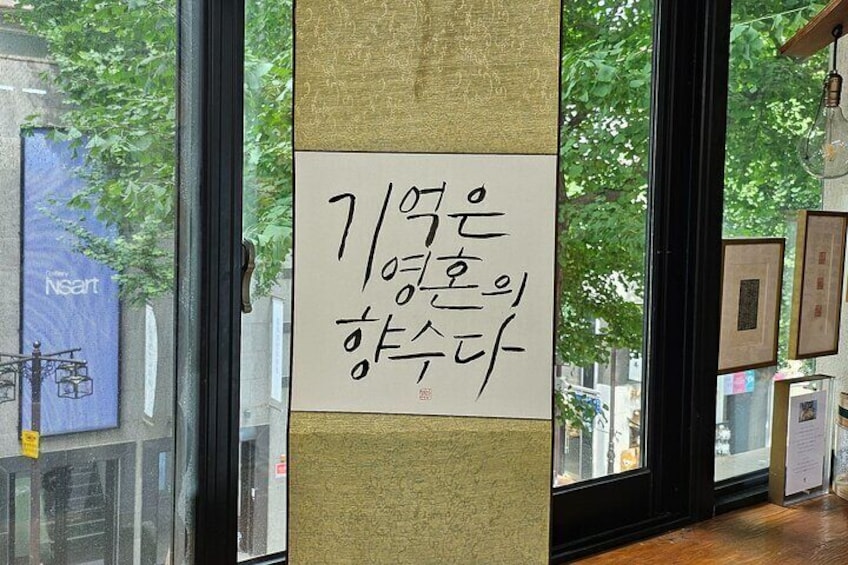 기억은
영혼의
향수다
Gallery
Nsart